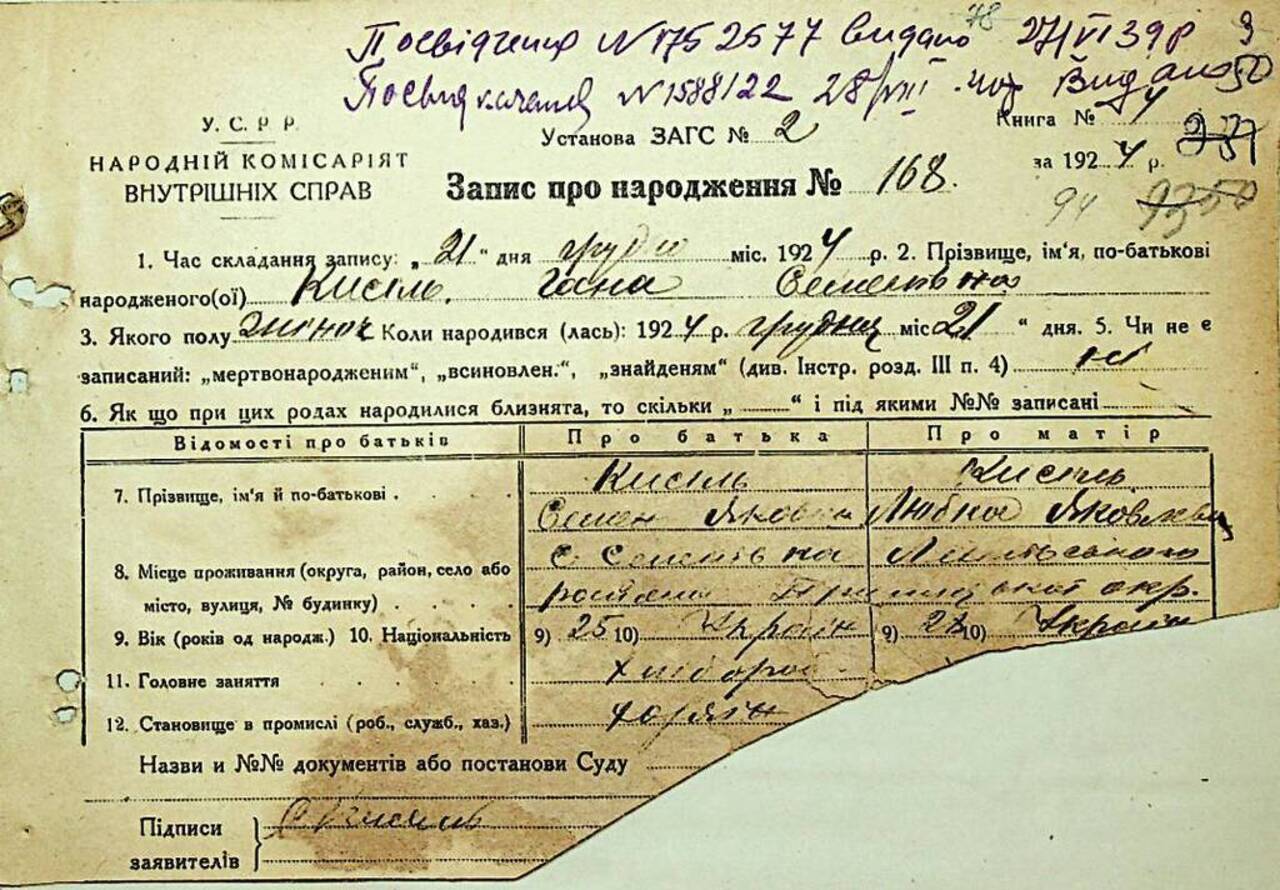 Посвідчення N 1752577 видано 27/VI 39 р
N 1588122 28/VIII Видано
У. С. Р Р.
НАРОДНІЙ КОМІСАРІЯТ
ВНУТРІШНІХ СПРАВ
Установа ЗАГС № 2
Книга № 4
за 1924 р.
Запис про народження № 168.
94
1. Час складання запису: „21“ дня грудня міс. 1924 р. 2. Прізвище, ім'я, по-батькові
народженого(ої) Кисіль Гана Семенівна
3. Якого полу жіноч Коли народився (лась): 1924 р. грудня міс 21 “ дня. 5. Чи не є
записаний: „мертвонародженим“, „всиновлен.“, „знайденям“ (див. Інстр. розд. III п. 4) ні
6. Як що при цих родах народилися близнята, то скільки „ “ і під якими №№ записані
Відомості про батьків Про батька Про матір
7. Прізвище, ім'я й по-батькові . Кисіль Кисіль
Семен Яковів Любка Яковлевн
8. Місце проживання (округа, район, село або с Семенівка
місто, вулиця, № будинку) . окр.
9. Вік (років од народж.) 10. Національність 9) 25 10) Україн 9) 10) Україн
11. Головне заняття
12. Становище в промислі (роб., служб., хаз.)
Назви и №№ документів або постанови Суду
Підписи
заявителів